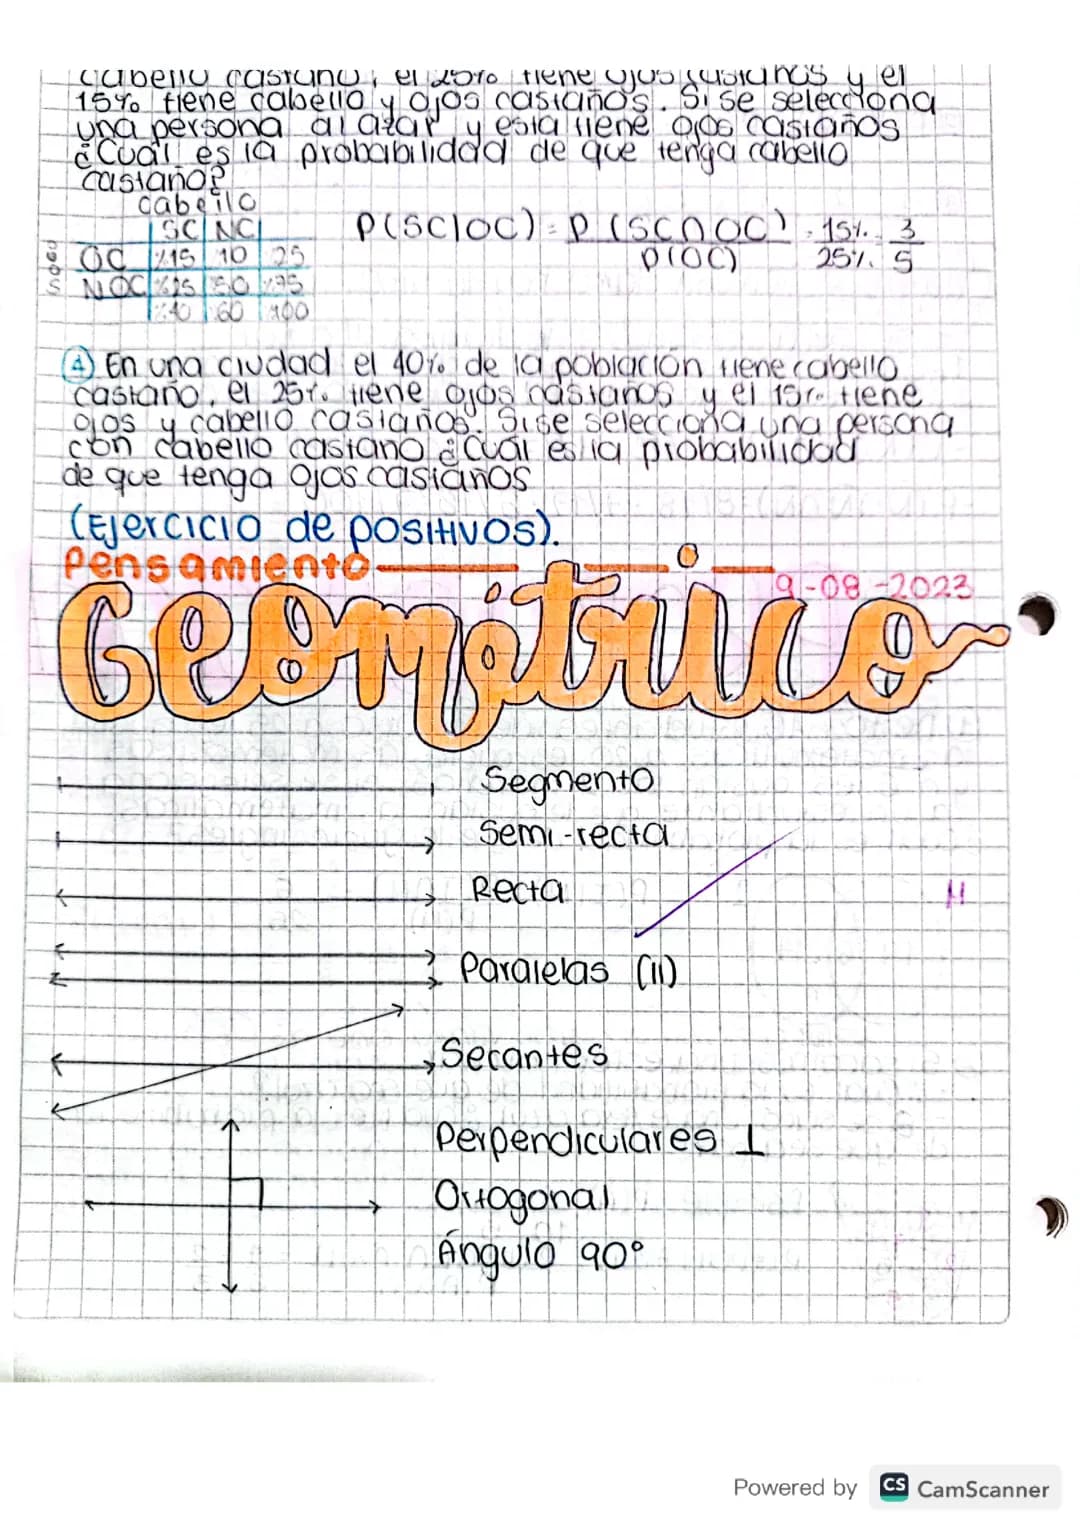 cabello castaño, el 25% tiene ojos castaños y el
15% tiene cabello y ojos castaños. Si se selecciona
una persona al azar y esta tiene ojos castaños
¿Cuál es la probabilidad de que tenga cabello
castaño?
cabello
SC NC
ojos OC %15 10 25
NOC %25 50 %75
%40 60 %100
P(SC|OC) = P(SC∩OC) = 15% = 3
P(OC) 25% 5
④ En una ciudad el 40% de la población tiene cabello
castaño, el 25% tiene ojos castaños y el 15% tiene
ojos y cabello castaños. Si se selecciona una persona
con cabello castaño ¿Cuál es la probabilidad
de que tenga ojos castaños
(Ejercicio de positivos).
Pensamiento
9-08-2023
Geométrico
Segmento
Semi-recta
Recta
Paralelas (||)
Secantes
Perpendiculares ⊥
Ortogonal
Ángulo 90°
Powered by CS CamScanner